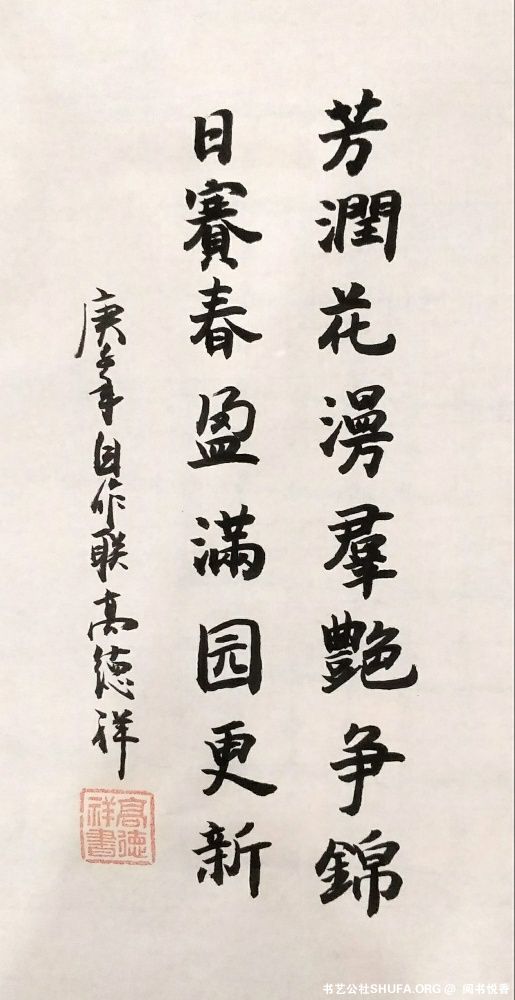 芳潤花漫羣艶争錦
日賽春盈滿园更新
庚子年自作联高德祥
高德祥書
书艺公社SHUFA.ORG @ 闻书悦香